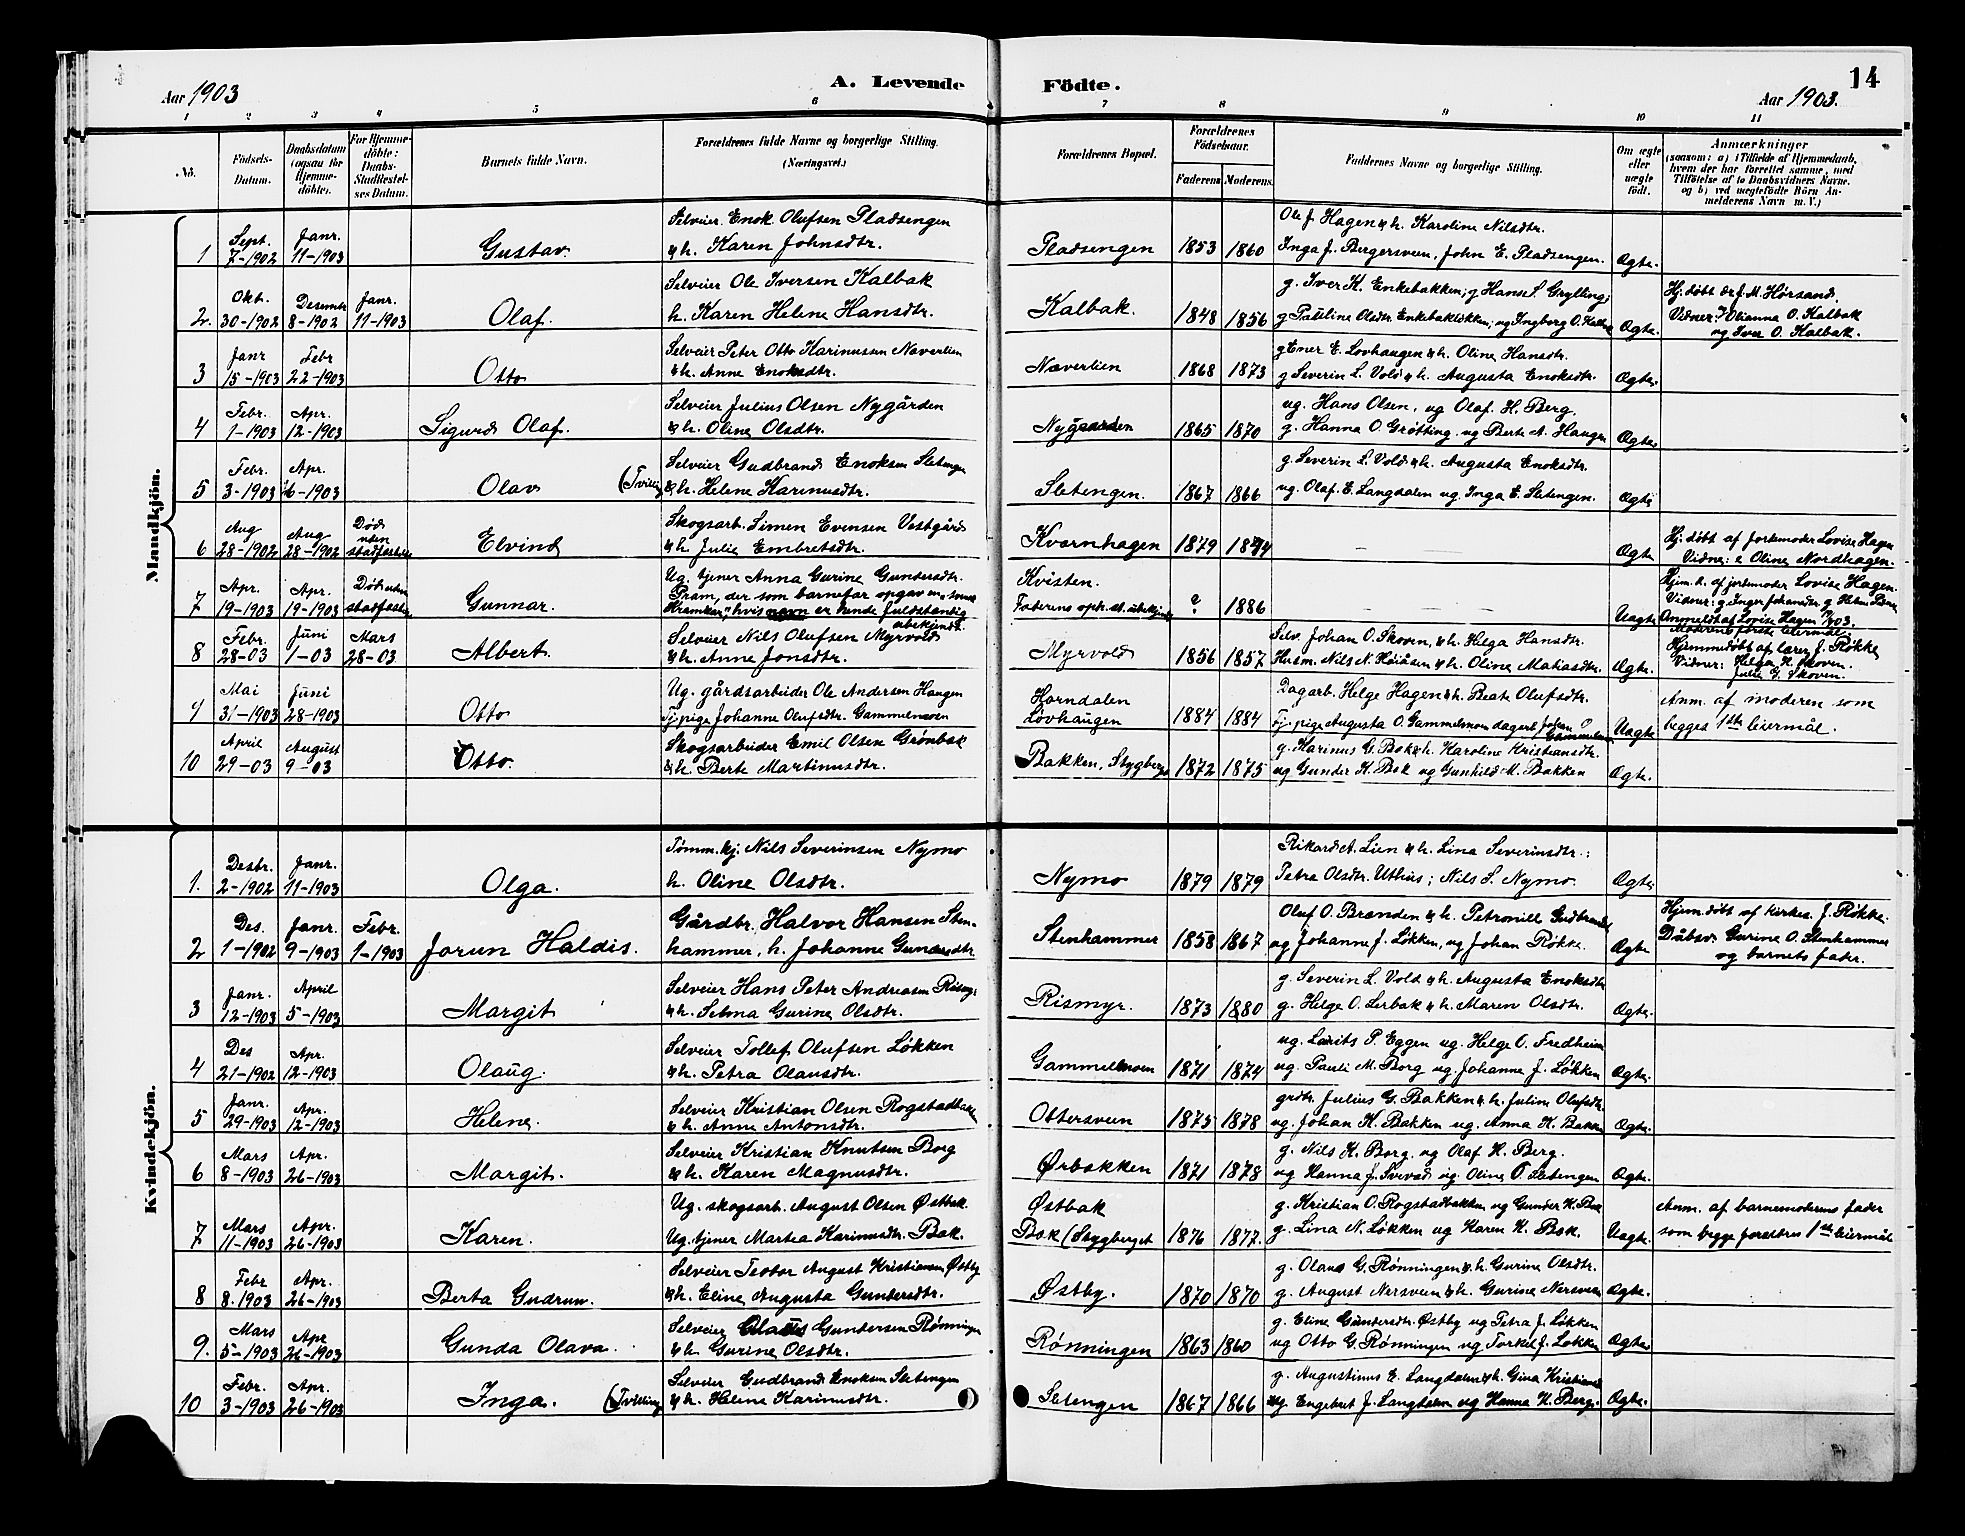 Aar 1903
A. Levende Födte.
Aar 1903.
14
1 2 3 4 5 6 7 8 9 10 11
No.
Födsels-Datum.
Daabsdatum (ogsaa for Hjemme-döbte).
For Hjemme-döbte: Daabs-Stadfæstel-ses Datum.
Barnets fulde Navn.
Forældrenes fulde Navne og borgerlige Stilling. (Næringsvei.)
Forældrenes Bopæl.
Forældrenes Födselsaar.
Faderens Moderens
Faddernes Navne og borgerlige Stilling.
Om ægte eller uægte födt.
Anmærkninger (saasom: a) i Tilfælde af Hjemmedaab, hvem der har forrettet samme, med Tilföielse af to Daabsvidners Navne, og b) ved uægtefödte Börn An-melderens Navn m. V.)
Mandkjön.
1 Sept. 7-1902 Janr. 11-1903 Gustav. Selveier Enok Olufsen Pladsengen & h. Karen Johnsdtr. Pladsengen 1853 1860 Ole J. Hagen & h. Karoline Nilsdtr. Inga J. Bergersveen, John E. Pladsengen. Ægte.
2. Okt. 30-1902 Desember 8-1902 Janr. 11-1903 Olaf. Selveier Ole Iversen Kalbak h. Karen Helene Hansdtr. Kalbak. 1848 1856 g. Iver K. Enkebakken; g Hans S. Grylling; g Pauline Olsdtr. Enkebakløkken; ug Ingborg O. Kalbak Ægte. Hj. døbt av J. M. Hørsand. Vidner: Olianna O. Kalbak og Iver O. Kalbak.
3 Janr 15-1903 Febr 22-1903 Otto Selveier Peter Otto Karinussen Næverlien & h. Anne Enoksdtr. Næverlien 1868 1873 g Ener E. Lovhaugen & h. Oline Hansdtr. g Severin L. Vold & h. Augusta Enoksdtr. Ægte.
4 Febr. 1-1903 Apr. 12-1903 Sigurd Olaf. Selveier Julius Olsen Nygården & h. Oline Olsdtr. Nygaarden 1865 1870 ug. Hans Olsen, ug Olaf. H. Berg. g. Hanna O. Grøtting, ug Berte A. Haugen Ægte
5 Febr. 3-1903 Apr. 26-1903 Olav (Tvilling) Selveier Gudbrand Enoksen Sletengen & h. Helene Karinusdtr. Sletengen. 1867 1866 g. Severin L. Vold & h. Augusta Enoksdtr. ug. Olaf. E. Langdalen ug Inga E. Sletengen. Ægte
6 Aug 28-1902 Aug 28-1902 Død uten stadfæstelse Elvind Skogsarb. Simen Evensen Vestgård & h. Julie Embretsdtr. Kvernhagen 1879 1874 — — — Ægte Hj. døbt af jordmoder Lovise Hagen Vidne: Oline Nordhagen.
7 Apr. 19-1903 Apr. 19-1903 Død uten stadfæstelse Gunnar. Ug. tjener Anna Gurine Gundersdtr. Pram, der som barnefar opgav en Kramkar, hvis navn er hende fuldstændig ubekjendt. Kvisten. Faderens oph. st. ubekjendt ? 1886 — — — Uægte Hjem. d. af jordmoder Lovise Hagen. Anmeldt af Lovise Hagen Moderens første leiermål.
8 Febr. 28-03 Juni 1-03 Mars 28-03 Albert. Selveier Nils Olufsen Myrvold & h. Anne Jonsdtr. Myrvold 1856 1857 Selv. Johan O. Skoven, & h. Helga Hansdtr. Husm. Nils N. Høiåsen & h. Oline Matiasdtr. Ægte. Hjemmedøbt af lærer J. Røkke Vidner: Helga H. Skoven. Julie G. Skoven.
9 Mai 31-1903 Juni 28-1903 Otto Ug. gårdsarbeider Ole Andersen Haugen Tj. pige Johanne Olufsdtr. Gammelmoen Horndalen Løvhaugen 1884 1884 Dagarb. Helge Hagen & h. Beate Olufsdtr. Tj. pige Augusta O. Gammelmoen dagarb. Johan O Gammelmoen Uægte Anm. af moderen som begges 1ste leiermål.
10 April 29-03 August 9-03 Otto. Skogsarbeider Emil Olsen Grønbak & h. Berte Martinusdtr. Bakken, Stygberget 1872 1875 g. Karinus G. Bak & h. Karoline Kristiansdtr. ug Gunder K. Bak ug Gunhild M. Bakken Ægte.
Kvindekjön.
1. Desbr. 2-1902 Janr. 11-1903 Olga. Tømm.kj. Nils Severinsen Nymo h. Oline Olsdtr. Nymo 1879 1879 Rikard A. Lien & h. Lina Severinsdtr.; Petra Olsdtr. Uthus; Nils S. Nymo. Ægte
2 Des. 1-1902 Janr. 9-1903 Febr. 1-1903 Jorun Haldis. Gårdbr. Halvor Hansen Sten-hammer, h. Johanne Gunersdtr. Stenhammer 1858 1867 Oluf O. Brænden & h. Petronille Gudbrandsdtr ug Johanne J. Løkken, ug Johan Røkke. Ægte Hjem.døbt af kirkes. J. Røkke. Dåbsv. Gurine O. Stenhammer og barnets fader.
3 Janr. 12-1903 April 5-1903 Margit Selveier Hans Peter Andreasen Rismyr & h. Selma Gurine Olsdtr. Rismyr. 1873 1880 g. Severin L. Vold & h. Augusta Enoksdtr g. Helge O. Lerbak & h. Maren Olsdtr. Ægte.
4 Des 21-1902 Apr. 12-1903 Olaug. Selveier Tollef Olufsen Løkken & h. Petra Olausdtr. Gammelmoen 1871 1874 ug. Laurits P. Eggen ug. Helge O. Fredheim ug. Pauli M. Borg ug. Johanne J. Løkken Ægte.
5 Janr. 29-1903 Apr. 12-1903 Helene. Selveier Kristian Olsen Rogstadbakken & h. Anne Antonsdtr. Ottersveen 1875 1878 grdbr. Julius G. Bakken & h. Juline Olufsdtr. ug. Johan K. Bakken ug. Anna K. Bakken Ægte.
6 Mars 8-1903 Apr. 26-1903 Margit. Selveier Kristian Knutsen Borg & h. Karen Magnusdtr. Ørbakken 1871 1878 g. Nils K. Borg, ug Olaf H. Berg. ug Hanna J. Svevad ug. Oline O. Sletengen Ægte.
7 Mars 11-1903 Apr. 26-1903 Karen. Ug. skogsarb. August Olsen Østbak. Ug. tjener Martea Karinusdtr. Bak. Østbak Bak (Stygberget 1876 1877 g. Kristian O. Rogstadbakken ug Gunder K. Bak g. Lina N. Løkken ug Karen K. Bak. Uægte Anm. af barnemoderens fader som begge foreldres 1ste leiermål
8 Febr 8. 1903 Apr. 26-1903 Berta Gudrun. Selveier Teodor August Kristiansen Østby & h. Eline Augusta Gundersdtr. Østby. 1870 1870 g. Olaus G. Rønningen & h. Gurine Olsdtr. g. August Nersveen & h. Gurine Nersveen Ægte.
9. Mars 5-1903 Apr 26-1903 Gunda Olava. Selveier Olaus Gundersen Rønningen & h. Gurine Olsdtr. Rønningen 1863 1860 g. Eline Gundersdtr. Østby ug Petra J. Løkken ug Otto G. Rønningen ug Torkil J. Løkken Ægte
10 Febr. 3-1903 Apr. 26-1903 Inga. (Tvilling) Selveier Gudbrand Enoksen Sletengen & h. Helene Karinusdtr. Sletengen 1867 1866 g. Augustinus E. Langdalen & h. Gina Kristiansdtr ug. Engebret J. Langdalen ug Hanna H. Berg. Ægte.